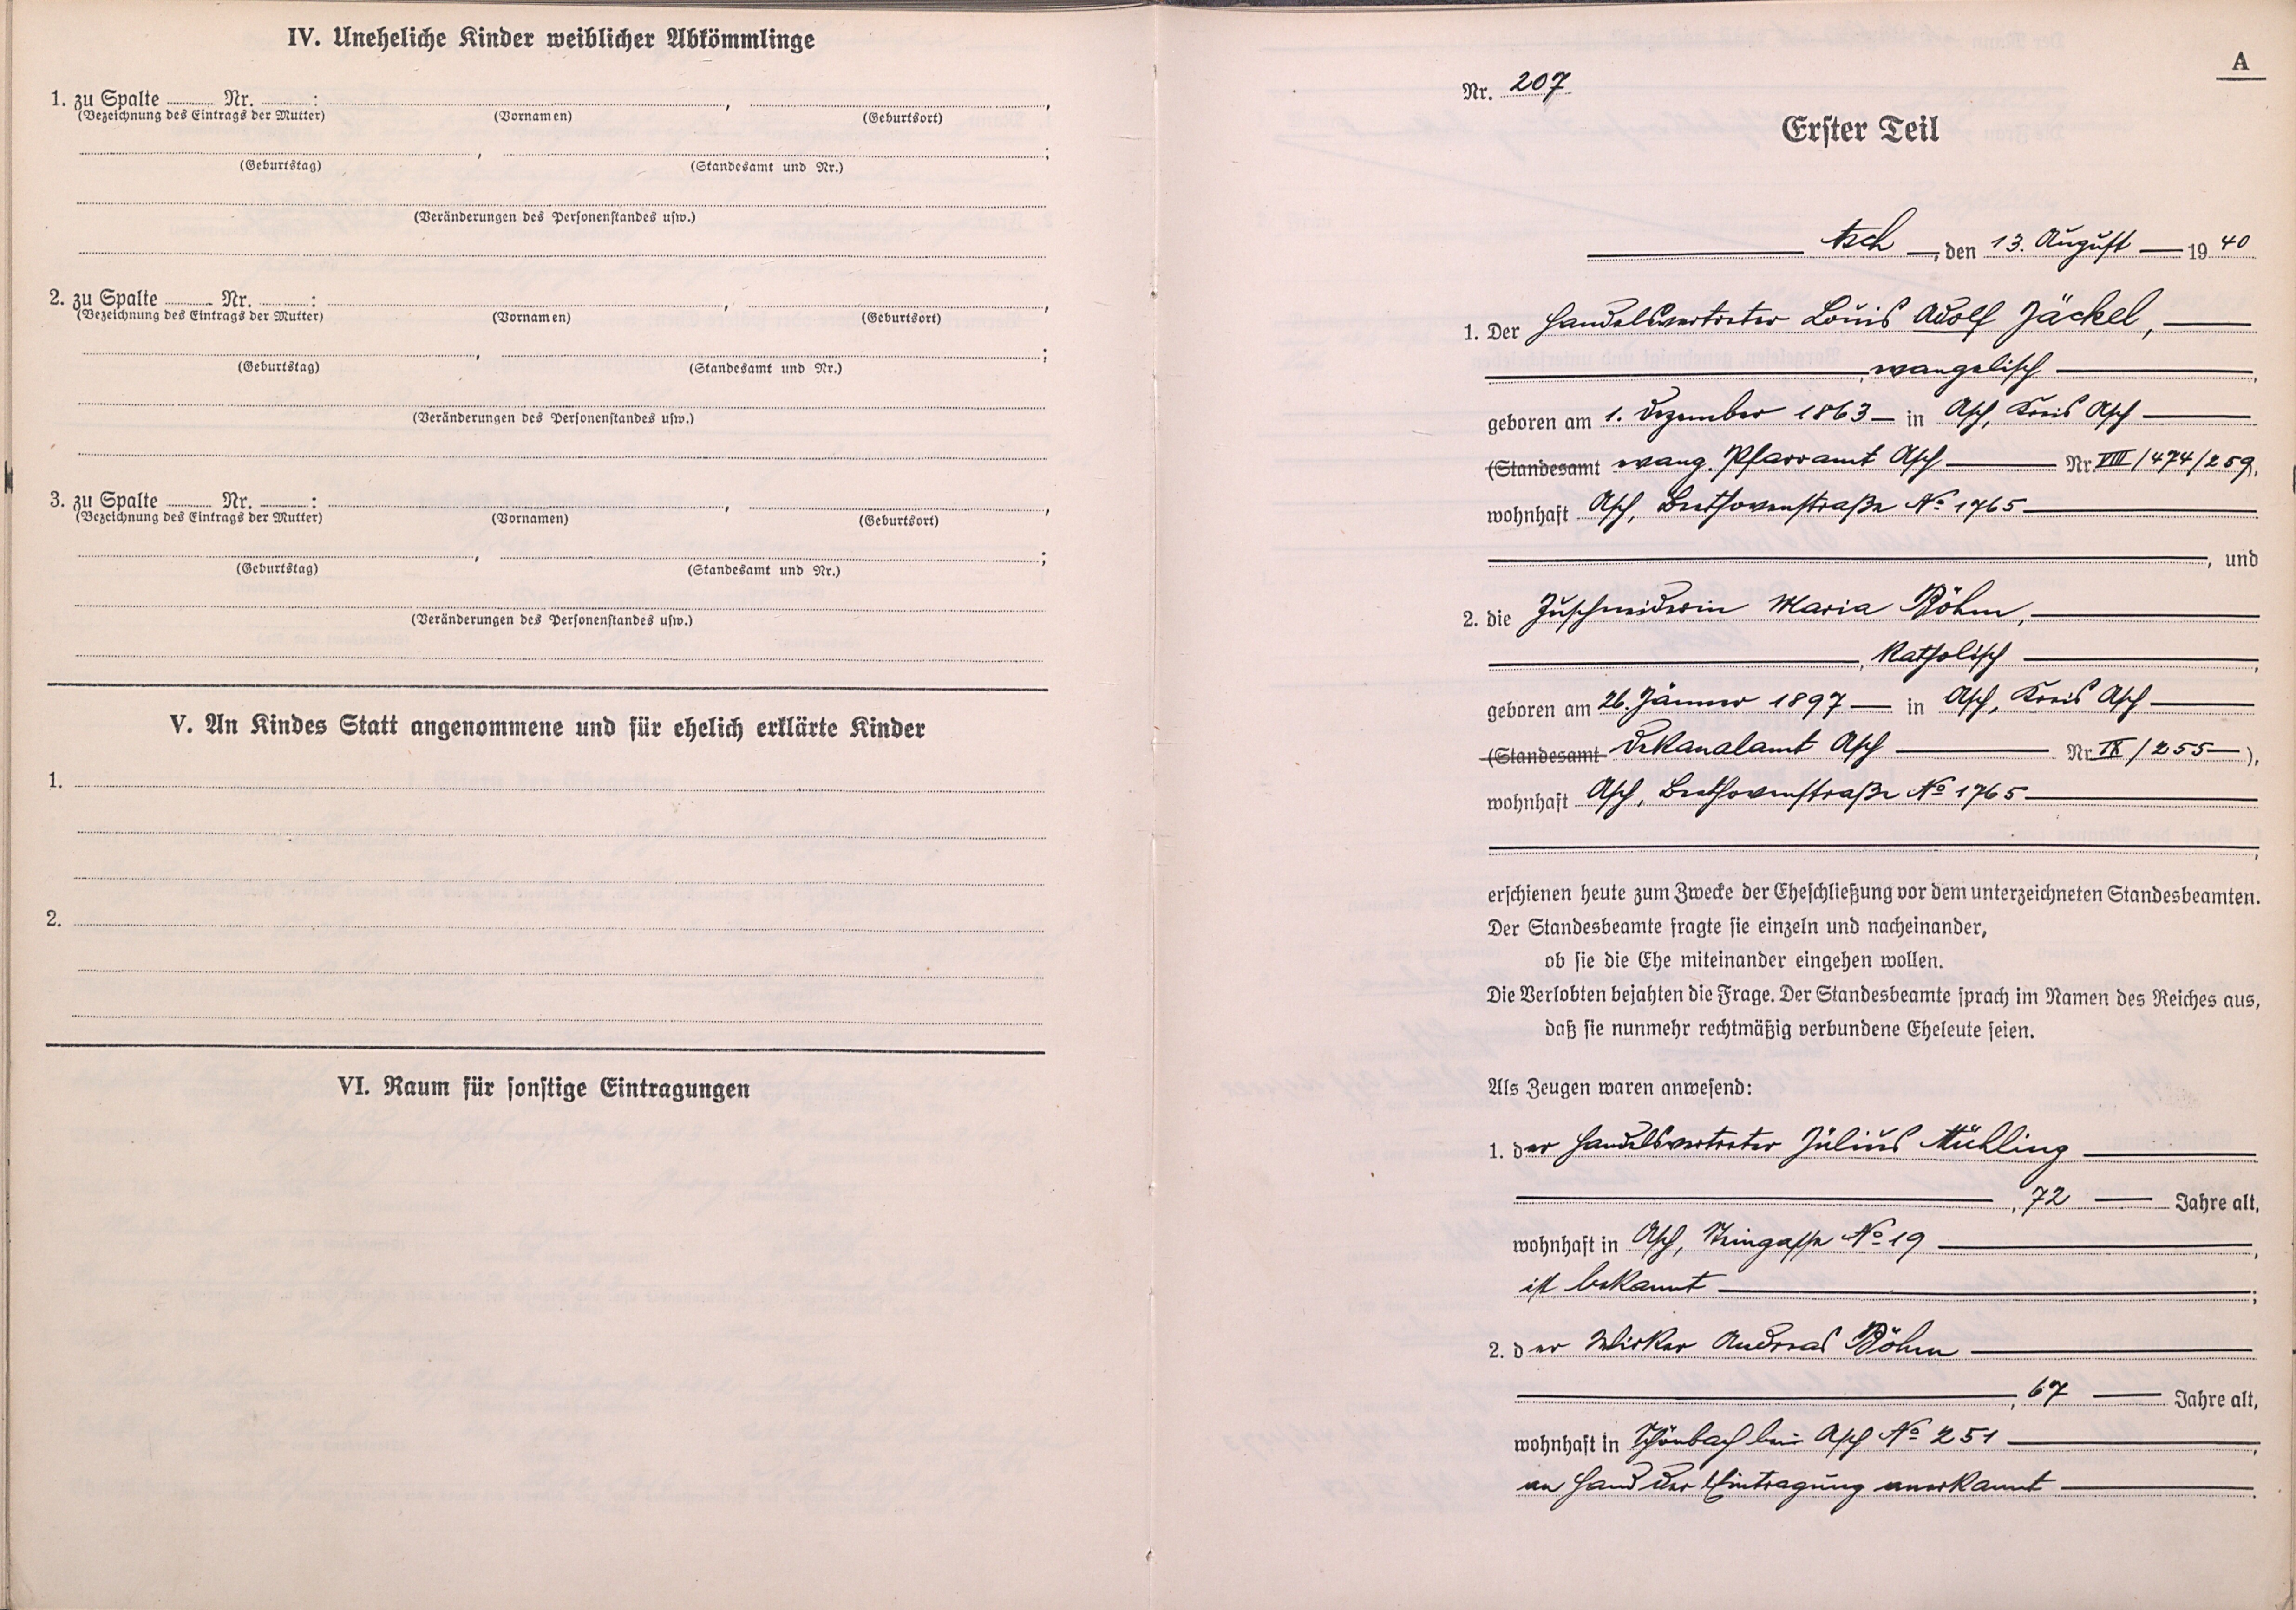 IV. Uneheliche Kinder weiblicher Abkömmlinge
1. zu Spalte ........ Nr. ........: ........, ........,
(Bezeichnung des Eintrags der Mutter) (Vornamen) (Geburtsort)
........, ........;
(Geburtstag) (Standesamt und Nr.)
(Veränderungen des Personenstandes usw.)
2. zu Spalte ........ Nr. ........: ........, ........,
(Bezeichnung des Eintrags der Mutter) (Vornamen) (Geburtsort)
........, ........;
(Geburtstag) (Standesamt und Nr.)
(Veränderungen des Personenstandes usw.)
3. zu Spalte ........ Nr. ........: ........, ........,
(Bezeichnung des Eintrags der Mutter) (Vornamen) (Geburtsort)
........, ........;
(Geburtstag) (Standesamt und Nr.)
(Veränderungen des Personenstandes usw.)
V. An Kindes Statt angenommene und für ehelich erklärte Kinder
1.
2.
VI. Raum für sonstige Eintragungen
A
Nr. 207
Erster Teil
Asch, den 13. August 1940
1. Der Handelsvertreter Louis Adolf Jäckel,
, evangelisch,
geboren am 1. Dezember 1863 in Asch, Kreis Asch
(Standesamt evang. Pfarramt Asch Nr. VIII/474/259),
wohnhaft Asch, Beethovenstraße No 1765
, und
2. die Zuschneiderin Maria Böhm,
, katholisch,
geboren am 26. Jänner 1897 in Asch, Kreis Asch
(Standesamt Dekanalamt Asch Nr. IX/255),
wohnhaft Asch, Beethovenstraße No 1765
,
erschienen heute zum Zwecke der Eheschließung vor dem unterzeichneten Standesbeamten.
Der Standesbeamte fragte sie einzeln und nacheinander,
ob sie die Ehe miteinander eingehen wollen.
Die Verlobten bejahten die Frage. Der Standesbeamte sprach im Namen des Reiches aus,
daß sie nunmehr rechtmäßig verbundene Eheleute seien.
Als Zeugen waren anwesend:
1. der Handelsvertreter Julius Mühling
, 72 Jahre alt,
wohnhaft in Asch, Steingasse No 19,
ist bekannt;
2. der Wirker Andreas Böhm
, 67 Jahre alt,
wohnhaft in Schönbach bei Asch No 251,
an Hand der Eintragung anerkannt.